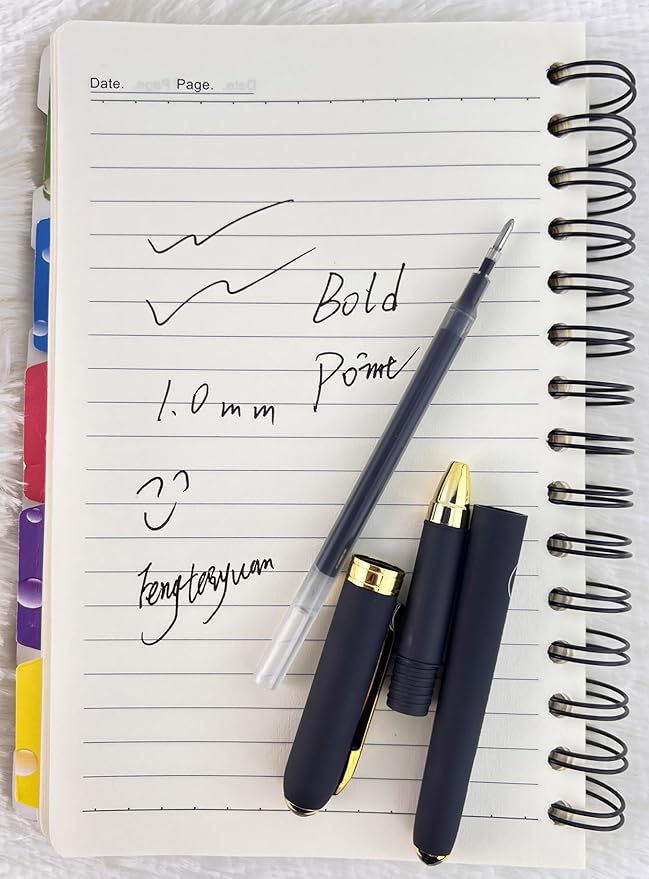 Date. Page.
Bold
Point
1.0 mm
Fengtaiyuan